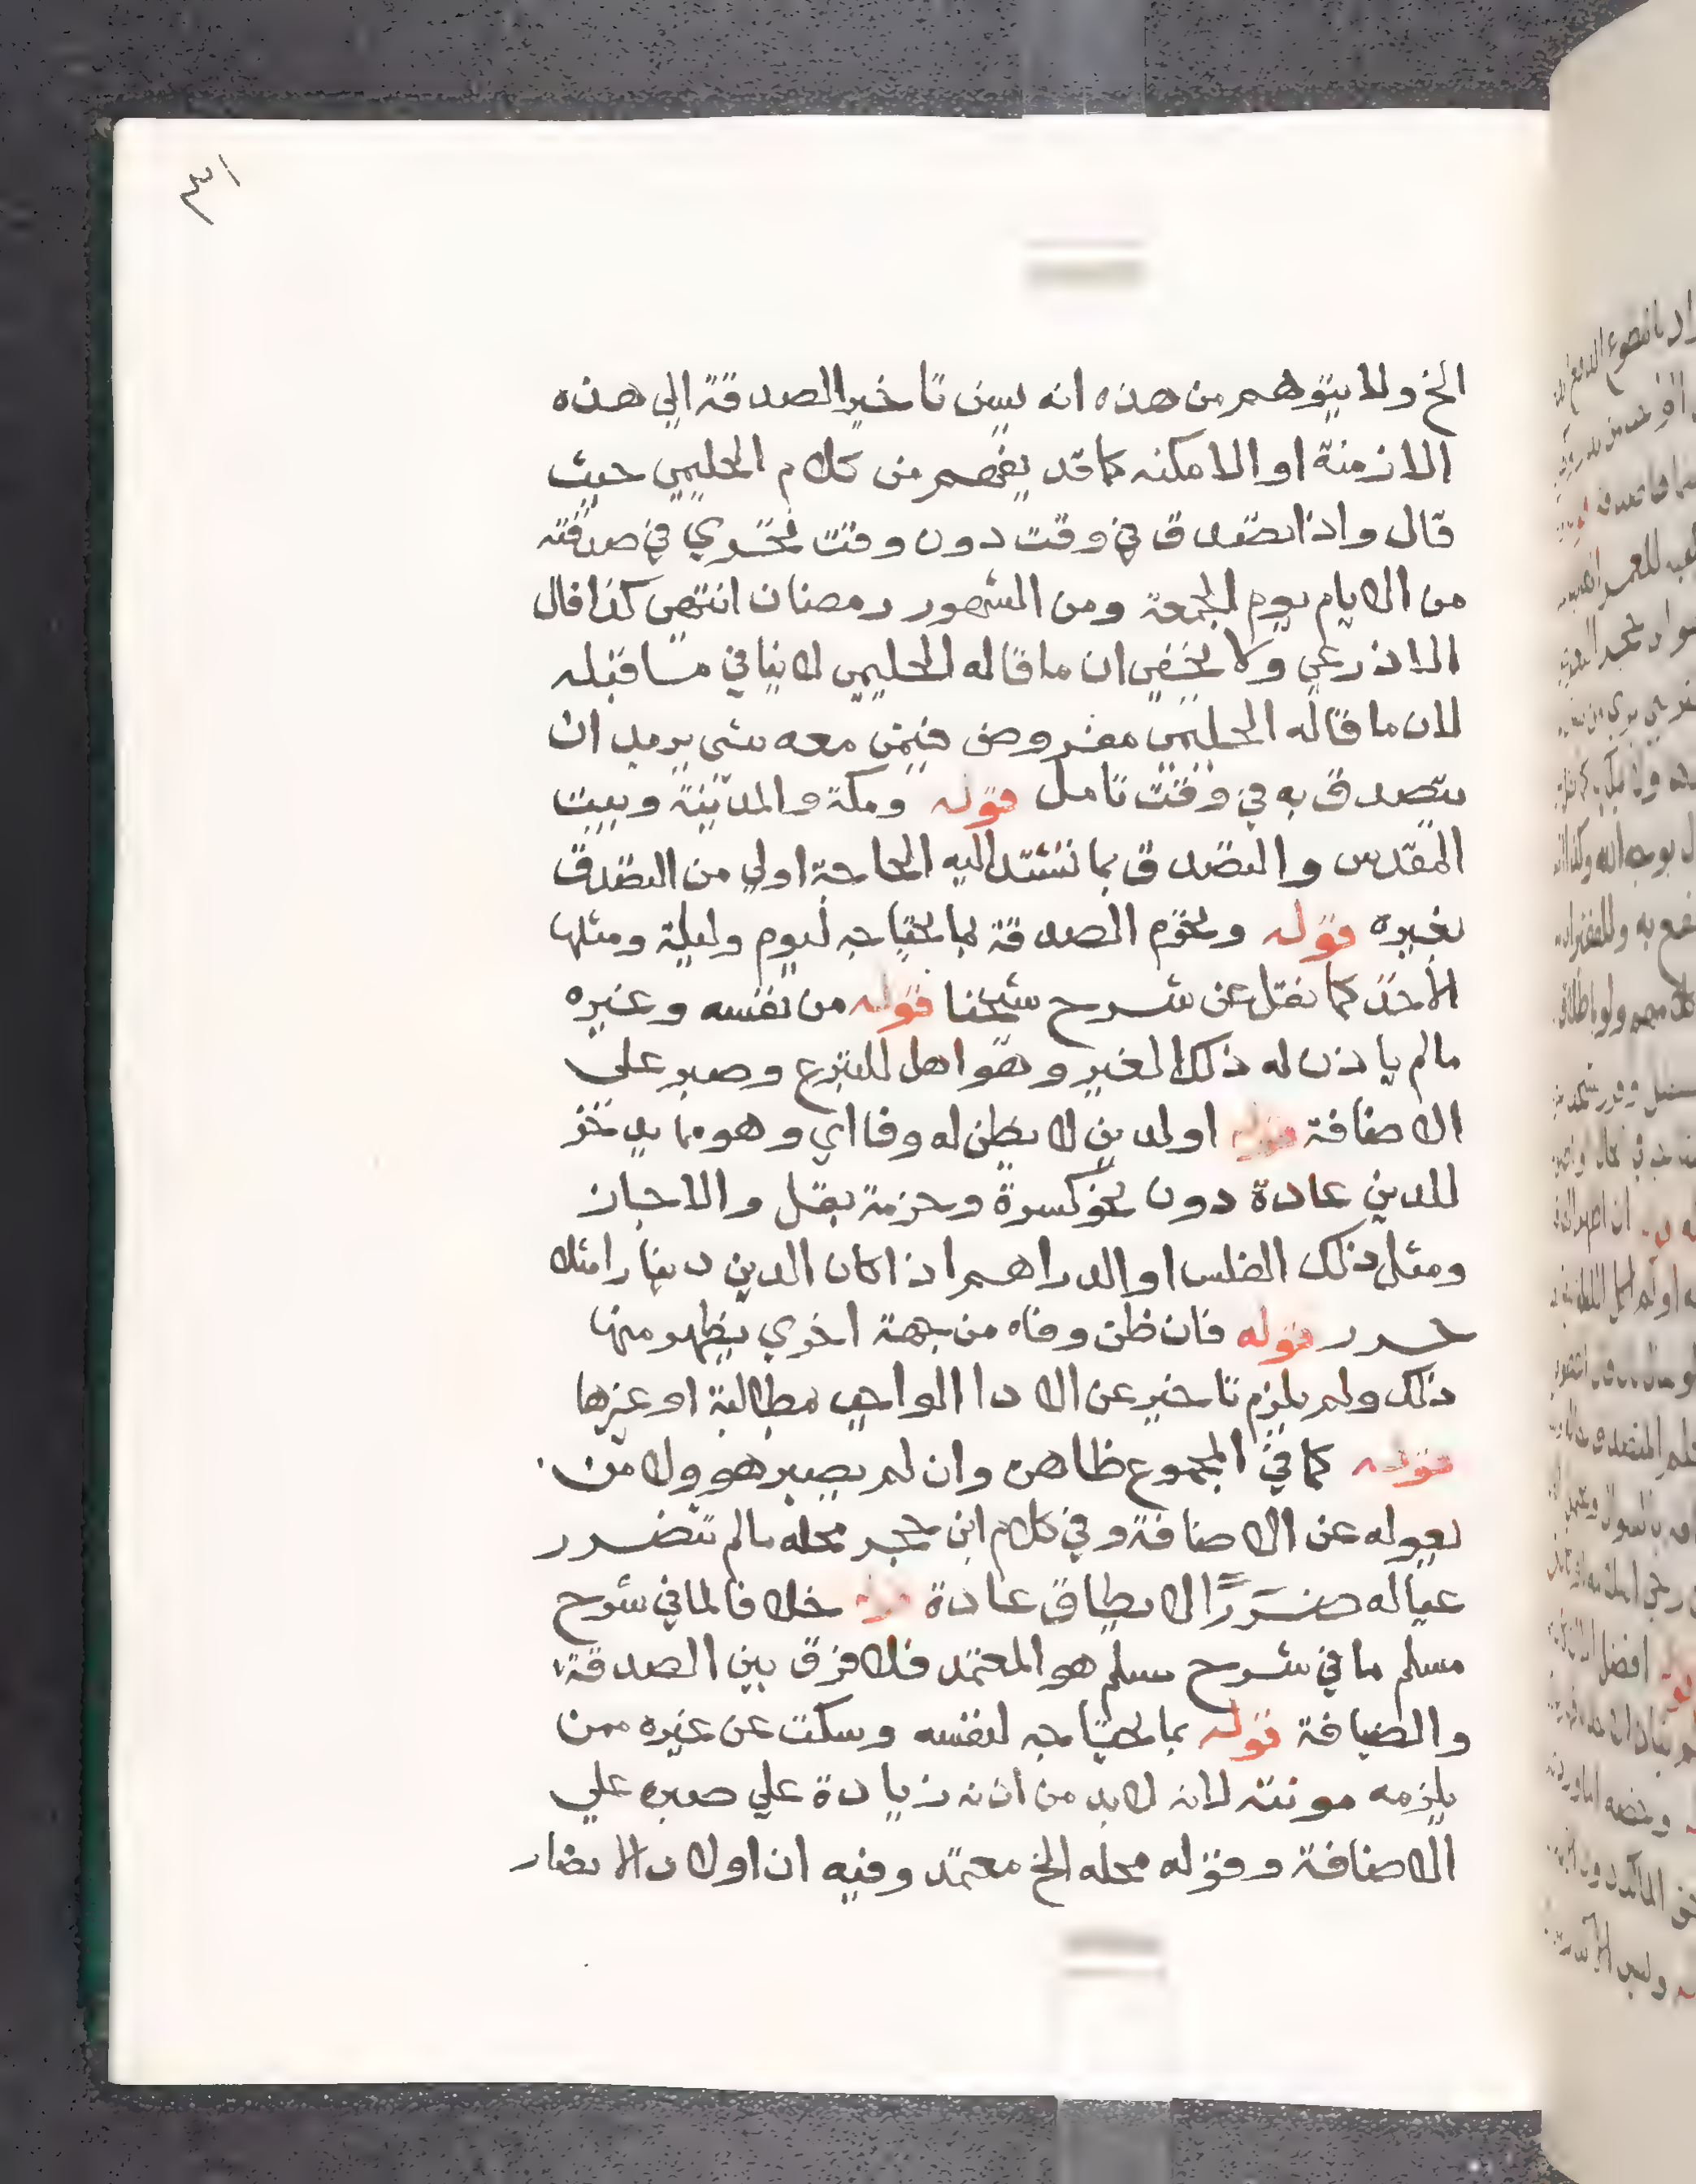 ٣١
الخ ولا يتوهم من هذه انه يسن تاخير الصدقة الي هذه
الازمنة او الامكنه كما قد يفهم من كلام الحليمي حيث
قال واذا تصدق في وقت دون وقت تحري في صدقته
من الايام يوم الجمعة ومن الشهور رمضان انتهي كذا قال
الاذرعي ولا يخفي ان ما قاله الحليمي لا ينافي ما قبله
لان ما قاله الحليمي مفروض فيمن معه شي يريد ان
يتصدق به في وقت تامل قوله ومكة والمدينة وبيت
المقدس والتصدق بما تشتد اليه الحاجة اولي من التصدق
بغيره قوله وتحرم الصدقة بما يحتاجه ليوم وليلة ومثلها
الاخذ كما نقل عن شرح شيخنا قوله من نفسه وغيره
مالم ياذن له ذلك الغير وهو اهل للتبرع وصبر علي
الاضافة قوله اولدين لا يظن له وفا اي وهو مما يدخر
للدين عادة دون نحو كسرة وحزمة بقل والاجاز
ومثل ذلك الفلس او الدراهم اذا كان الدين دينارا مثلا
حرر قوله فان ظن وفاه من جهة اخري يظهر منها
ذلك ولم يلزم تاخير عن الادا الواجب مطالبة او غيرها
قوله كما في المجموع ظاهره وان لم يصبر هو ولا من
يعوله عن الاضافة وفي كلام ابن حجر محله مالم تتضرر
عياله ضررًا لا يطاق عادة قوله خلافا لما في شرح
مسلم ما في شرح مسلم هو المعتمد فلا فرق بين الصدقة
والضيافة قوله بما يحتاجه لنفسه وسكت عن غيره ممن
يلزمه مونته لانه لا بد من اذنه زيادة علي صبره علي
الاضافة وقوله محله الخ معتمد وفيه ان اولاد الانصار